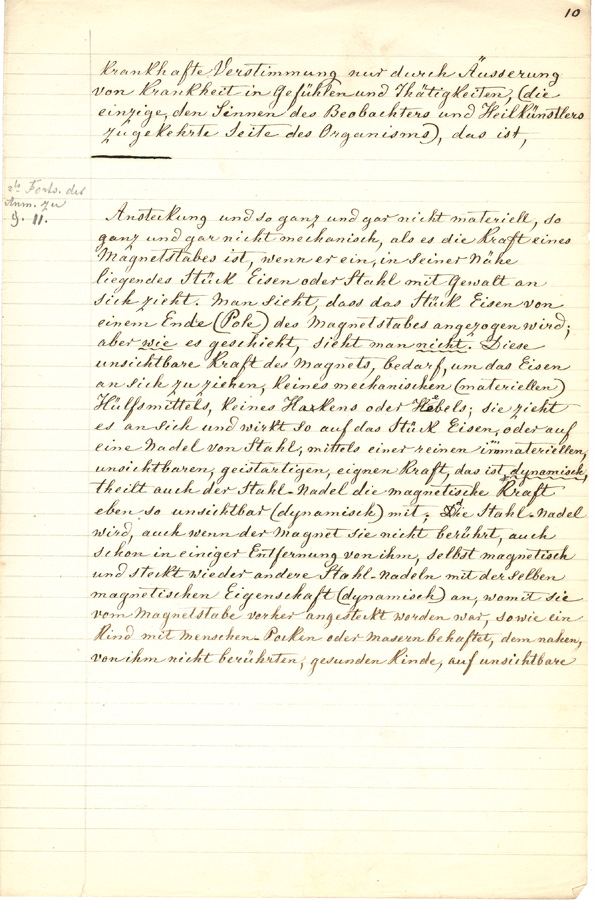 10
krankhafte Verstimmung nur durch Äusserung
von Krankheit in Gefühlen und Thätigkeiten, (die
einzige, den Sinnen des Beobachters und Heilkünstlers
zugekehrte Seite des Organisms), das ist,
Forts. der
Anm. zu
§. 11.
Ansteckung und so ganz und gar nicht materiell, so
ganz und gar nicht mechanisch, als es die Kraft eines
Magnetstabes ist, wenn er ein, in seiner Nähe
liegendes Stück Eisen oder Stahl mit Gewalt an
sich zieht. Man sieht, dass das Stück Eisen von
einem Ende (Pole) des Magnetstabes angezogen wird;
aber wie es geschieht, sieht man nicht. Diese
unsichtbare Kraft des Magnets, bedarf, um das Eisen
an sich zu ziehen, keines mechanischen (materiellen)
Hülfsmittels, keines Hakens oder Hebels; sie zieht
es an sich und wirkt so auf das Stück Eisen, oder auf
eine Nadel von Stahl, mittels einer reinen immateriellen,
unsichtbaren, geistartigen, eignen Kraft, das ist, dynamisch,
theilt auch der Stahl-Nadel die magnetische Kraft
eben so unsichtbar (dynamisch) mit; Die Stahl-Nadel
wird, auch wenn der Magnet sie nicht berührt, auch
schon in einiger Entfernung von ihm, selbst magnetisch
und steckt wieder andere Stahl-Nadeln mit derselben
magnetischen Eigenschaft (dynamisch) an, womit sie
vom Magnetstabe vorher angesteckt worden war, sowie ein
Kind mit Menschen-Pocken oder Masern behaftet, dem nahen,
von ihm nicht berührten, gesunden Kinde, auf unsichtbare